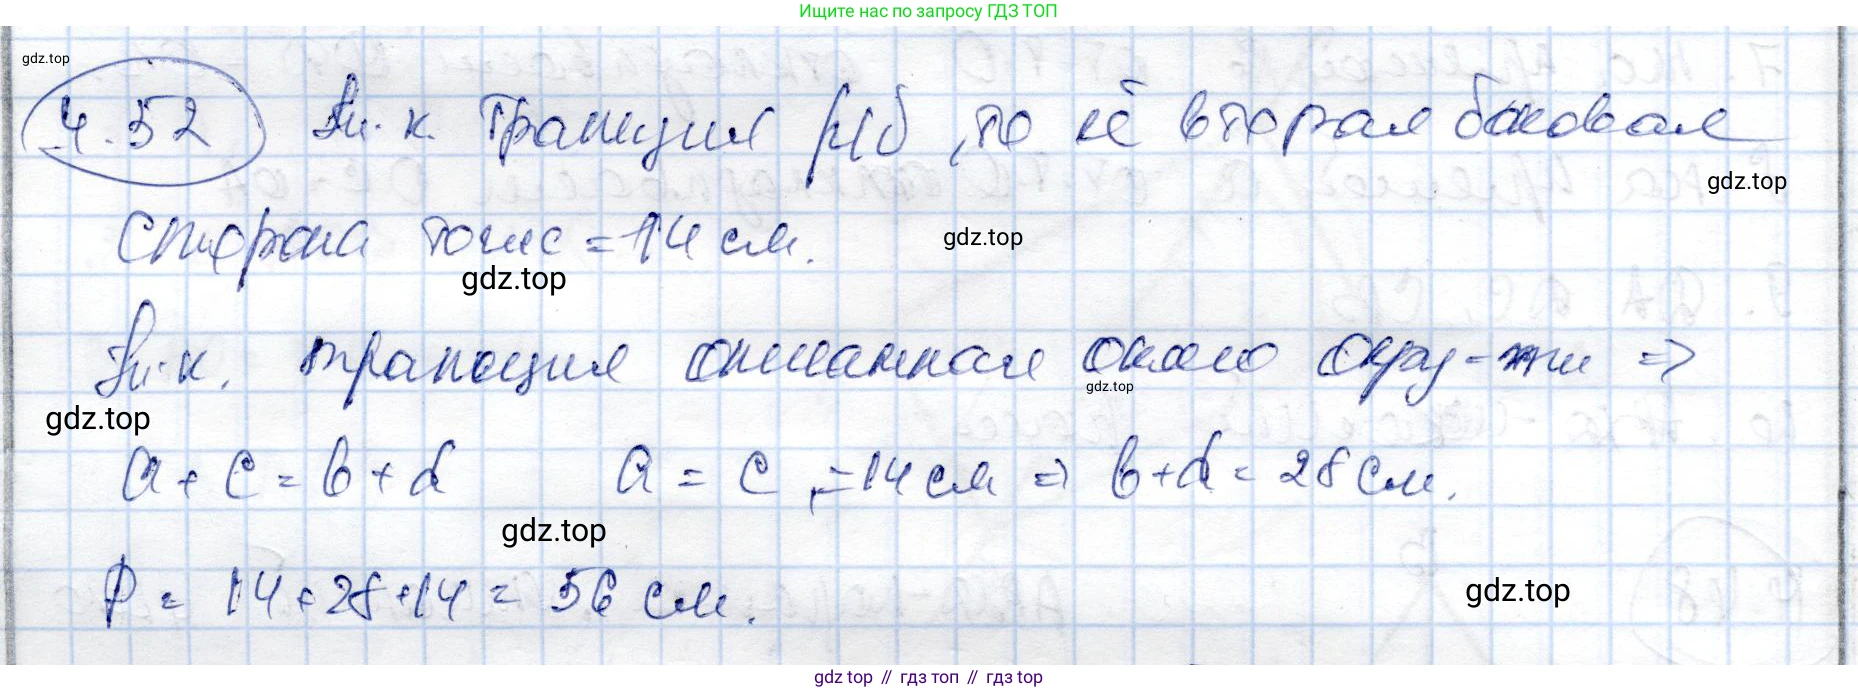 Ищите нас по запросу ГДЗ ТОП
gdz.top
4.52 Т.к. трапеция р/б, то её вторая боковая
gdz.top
сторона тоже = 14 см.
gdz.top
gdz.top
Т.к. трапеция описанная около окру-жти =>
gdz.top
gdz.top
a + c = b + d a = c = 14 см => b + d = 28 см.
gdz.top
P = 14 + 28 + 14 = 56 см.
gdz.top
gdz top // гдз топ // гдз top